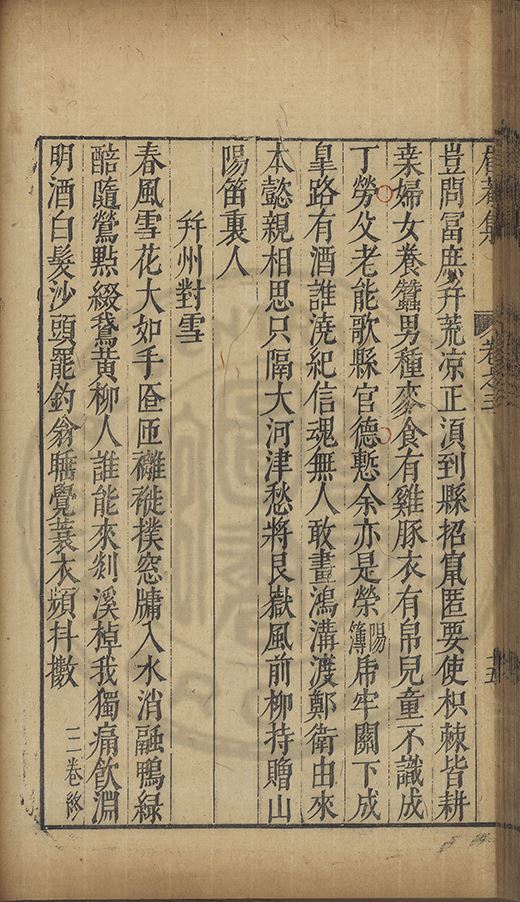 豈問冨庶幷荒凉正湏到縣招竄匿要使枳棘皆耕
桒婦女養蠶男種麥食有雞豚衣有帛兒童不識成
丁勞父老能歌縣官德慙余亦是滎陽簿虎牢關下成
臯路有酒誰澆紀信魂無人敢畫鴻溝渡鄭衛由來
本懿親相思只隔大河津愁將艮嶽風前柳持贈山
陽笛裏人
幷州對雪
春風雪花大如手匼匝䙰褷撲窓牗入水消融鴨緑
醅隨鶯㸃綴鵞黃柳人誰能來剡溪棹我獨痛飲淵
明酒白髮沙頭罷釣翁睡覺蓑衣頻抖擻
二卷終